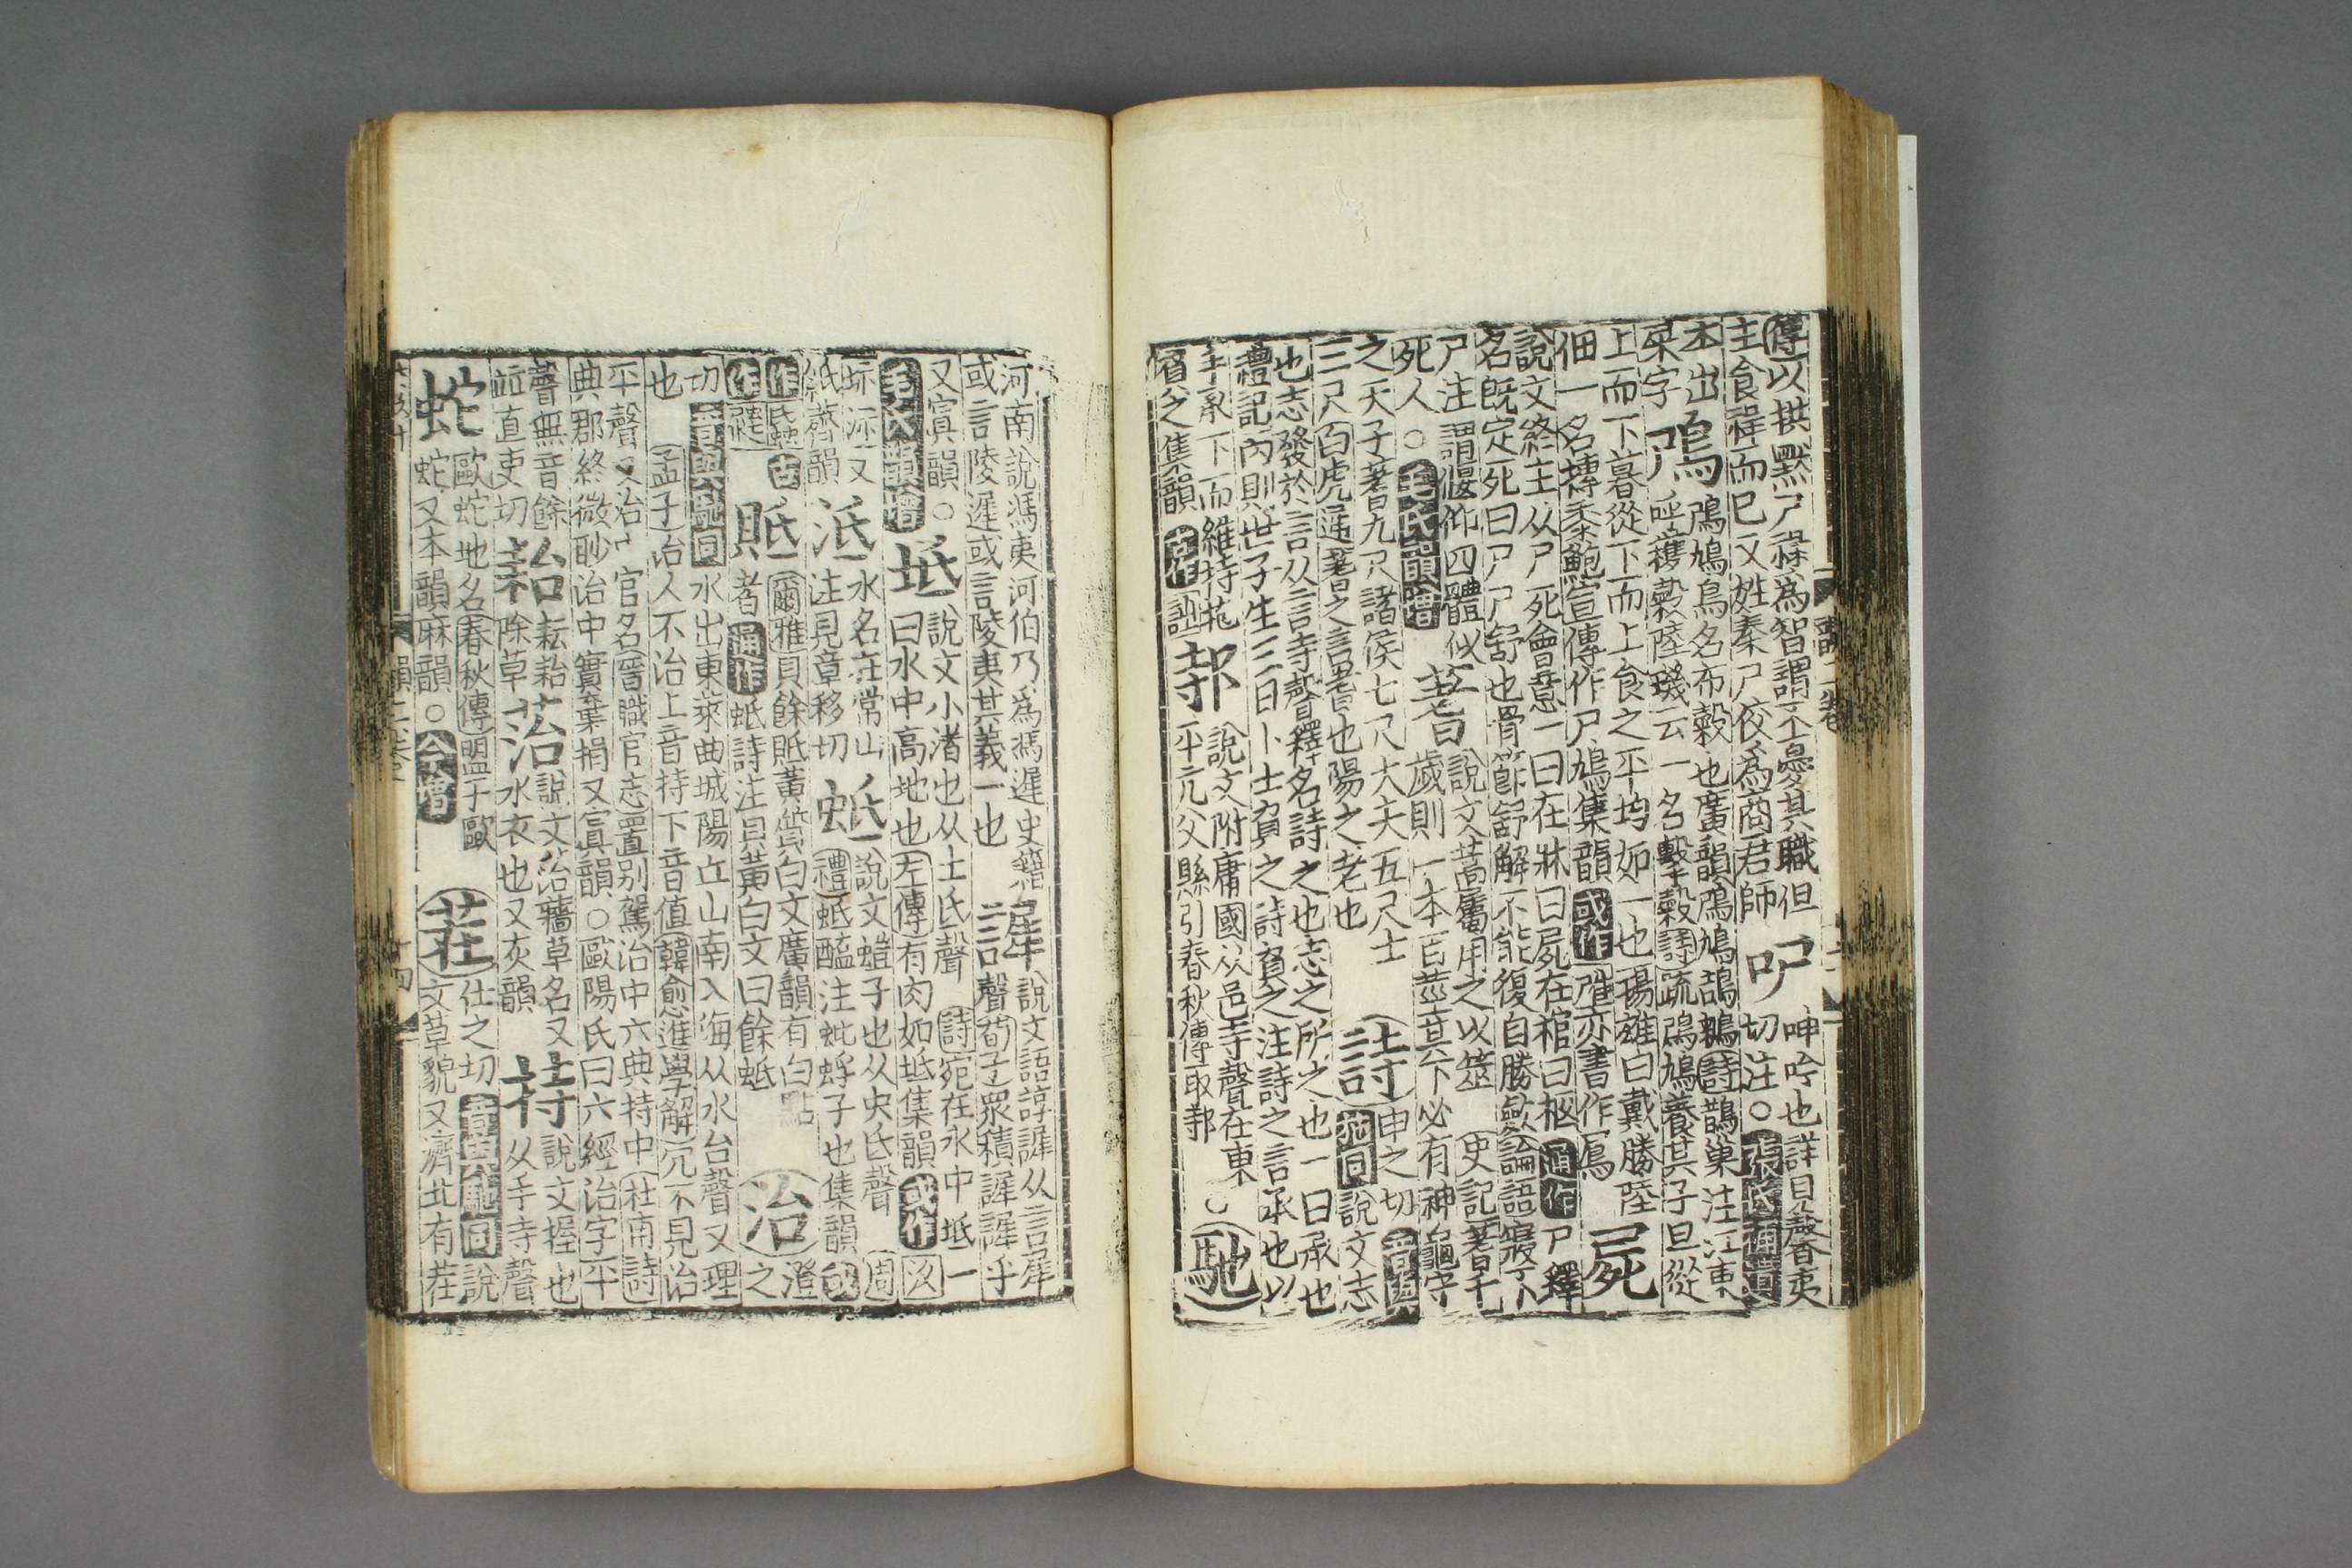 傳以拱黙尸祿爲智謂不憂其職但
主食禄而已又姓秦尸佼爲商君師
吚
呻吟也詳見馨夷
切注○
張氏補遺
本出
某字
鳲
鳲鳩鳥名布穀也廣韻鳲鳩鴶鵴詩鵲巢注江東
呼穫穀陸璣云一名擊穀詩疏鳲鳩養其子旦從
上而下暮從下而上食之平均如一也揚雄曰戴勝陸
佃一名摶黍鮑宣傳作尸鳩集韻
或作
䲩亦書作鳲
屍
說文終主从尸死會意一曰在牀曰屍在棺曰柩
通作
尸釋
名旣定死曰尸尸舒也骨節舒解不能復自勝斂論語寢不
尸注謂偃仰四體似
死人○
毛氏韻增
蓍
說文蒿屬用之以筮史記蓍千
歲則一本百莖其下必有神龜守
之天子蓍九尺諸侯七尺大夫五尺士
三尺百虎通蓍之言耆也陽之老也
詩
申之切
音與
邿同
說文志
也志發於言从言寺聲釋名詩之也志之所之也一曰承也
禮記內則世子生三日卜士負之詩負之注詩之言承也以
手承下而維持
省之集韻
古作
訨
邿
說文附庸國从邑寺聲在東
平元父縣引春秋傳取邿○
馳
河南說馮夷河伯乃爲馮遲史籍
或言陵遲或言陵夷其義一也
謘
說文語諄謘从言犀
聲荀子衆積謘謘乎
又寘韻○
毛氏韻增
坻
說文小渚也从土氏聲詩宛在水中坻一
曰水中高地也左傳有肉如坻集韻
或作
汷
坏沶又
紙薺韻
泜
水名在常山
注見章移切
蚳
說文螘子也从虫氐聲周
禮蚳醢注蚍蜉子也集韻
貾
爾雅貝餘貾黃質白文廣韻有白點
者
通作
蚳詩注貝黃白文曰餘蚳
治
澄之
切
音與馳同
水出東萊曲城陽丘山南入海从水台聲又理
也孟子治人不治上音持下音值韓愈進學解冗不見治
平聲又治中官名晉職官志置别駕治中六典持中杜甫詩
典郡終微眇治中實棄捐又寘韻○歐陽氏曰六經治字平
聲無音餘
竝直吏切
耛
耘耛
除草
菭
說文菭蘠草名又
水衣也又灰韻
持
說文握也
从手寺聲
蛇
歐蛇地名春秋傳盟于歐
蛇又本韻麻韻○
今增
茬
仕之切
音與馳同
說
文草貌又濟北有茬